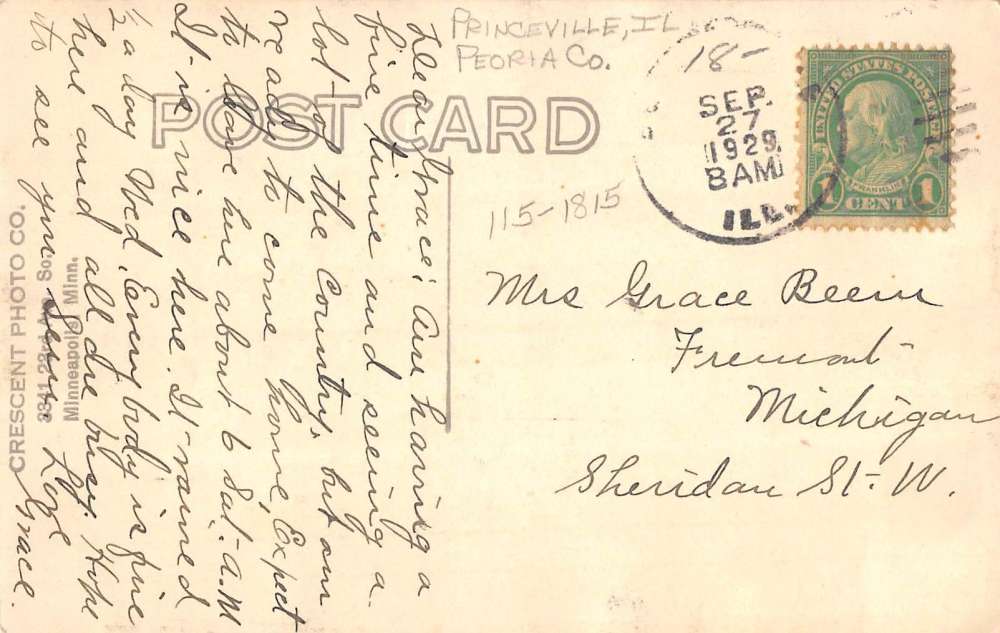 PRINCEVILLE, IL
PEORIA CO.
18-
SEP.
27
1929
8 AM
ILL.
UNITED STATES POSTAGE
FRANKLIN
1 CENT 1
POST CARD
115-1815
Mrs Grace Beem
Fremont
Michigan
Sheridan St. W.
Dear Grace: Am having a
fine time and seeing a
lot of the country, but am
ready to come home, Expect
to leave here about 6 Sat. A.M
It is nice here. It rained
½ a day Wed. Every body is fine
here and all are busy. Hope
to see you soon. Love
Grace.
CRESCENT PHOTO CO.
3341 23rd Ave. So.
Minneapolis Minn.